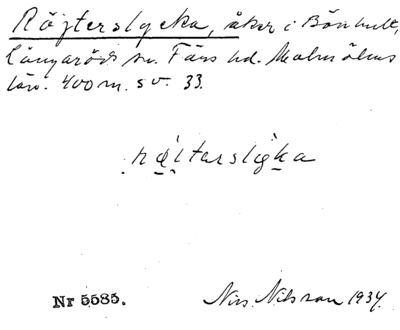 Röjterslycka, åker i Bönhult,
Långaröds sn. Färs hd. Malmöhus
län. 400 m. sv. 33.
röi̯tersly̨ka
Nr 5585.
Nils Nilsson 1934.